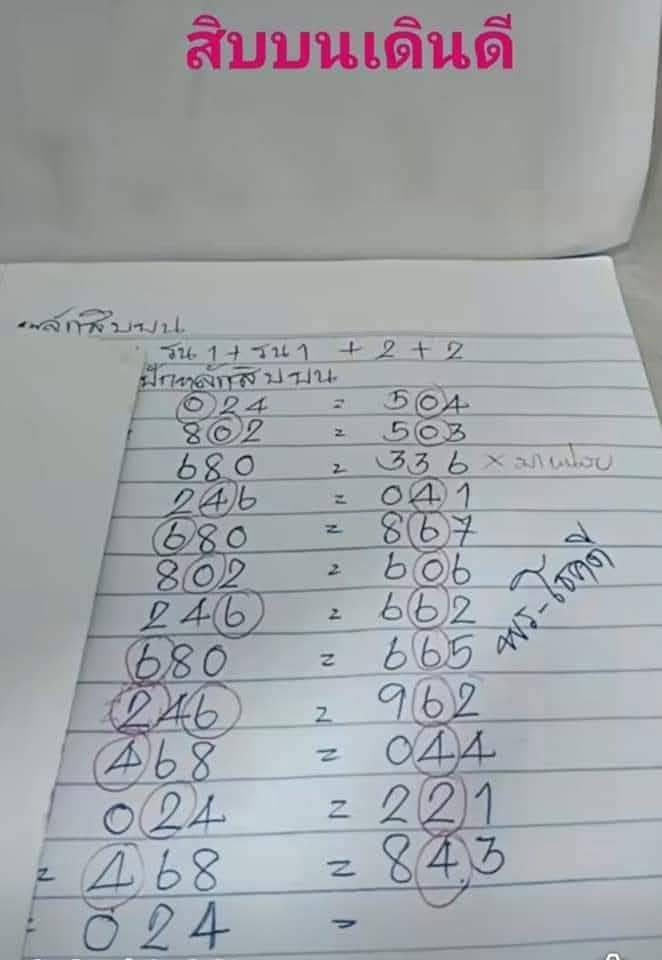 สิบบนเดินดี
หลักสิบบน
รน 1 + รน 1 + 2 + 2
ปักหลักสิบบน
024 = 504
802 = 503
680 = 336 ×
246 = 041
680 = 867
802 = 606
246 = 662
พร-โชคดี
680 = 665
246 = 962
468 = 044
024 = 221
= 468 = 843
= 024 -